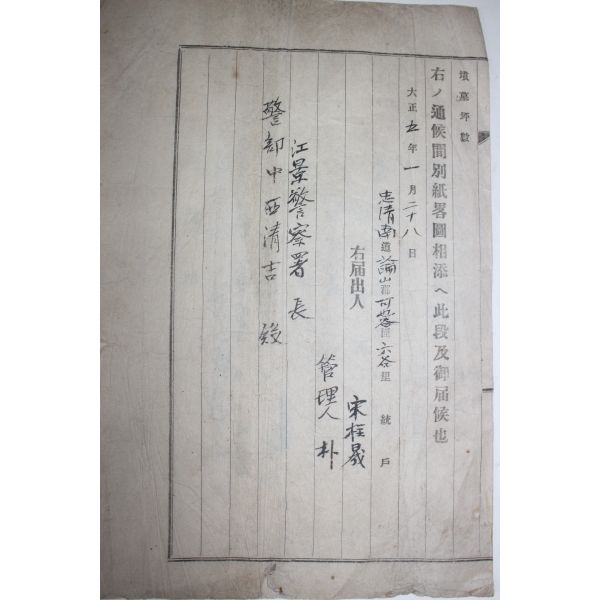 墳墓坪數
右ノ通候間別紙畧圖相添ヘ此段及御届候也
大正五年一月二十八日
忠清南道論山郡可 面六谷里 統 戶
右届出人 宋柱晟
管理人 朴
江景警察署長
警部中西清吉 殿